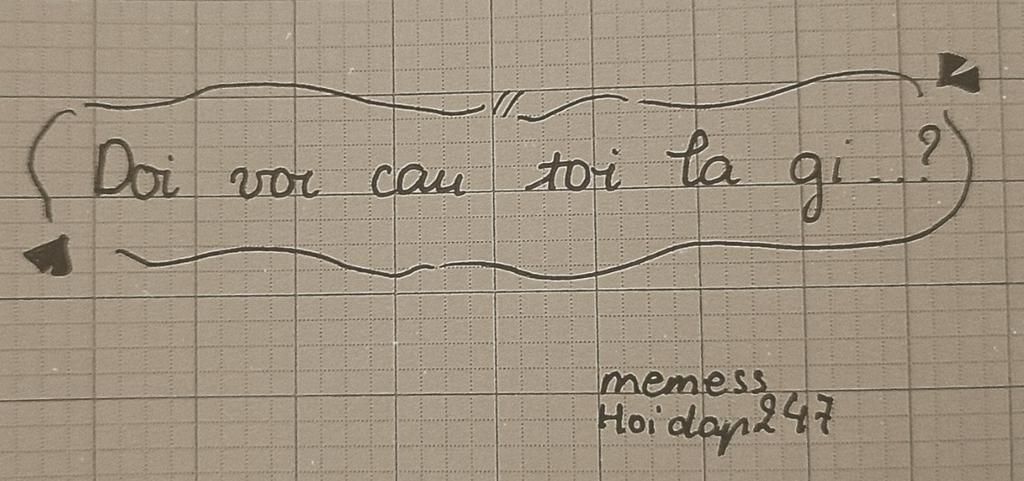 Doi voi cau toi la gi...?
memess
Hoidap247